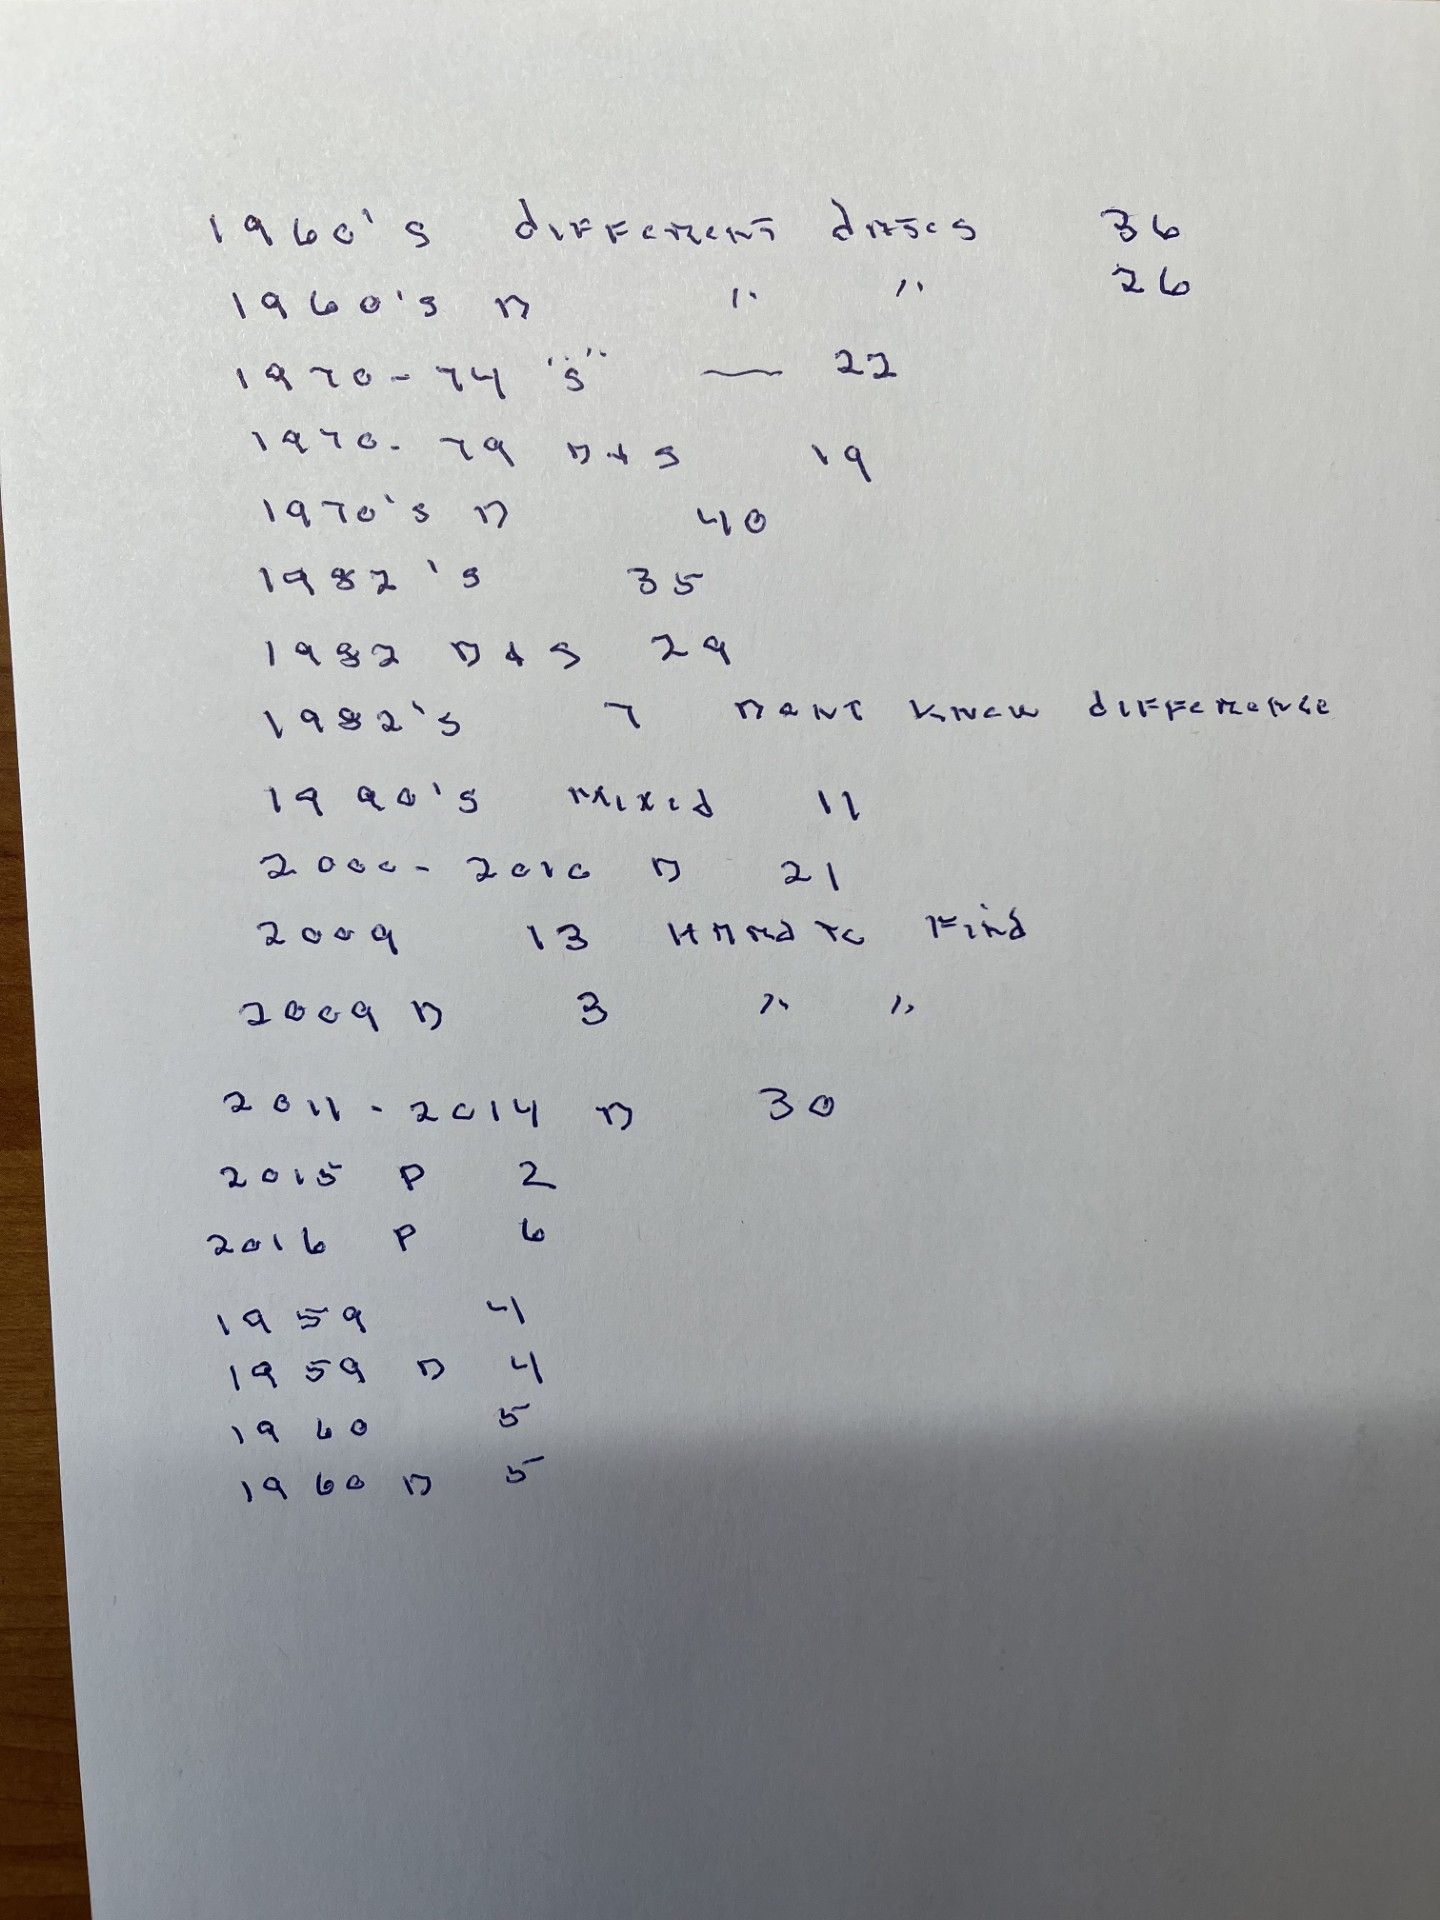 1960's different dates 36
1960's D " " 26
1970-74 "S" — 22
1970-79 D+S 19
1970's D 40
1982's 35
1982 D+S 29
1982's 7 Dont know difference
1990's mixed 11
2000-2010 D 21
2009 13 Hard to Find
2009 D 3 " "
2011-2014 D 30
2015 P 2
2016 P 6
1959 4
1959 D 4
1960 5
1960 D 5